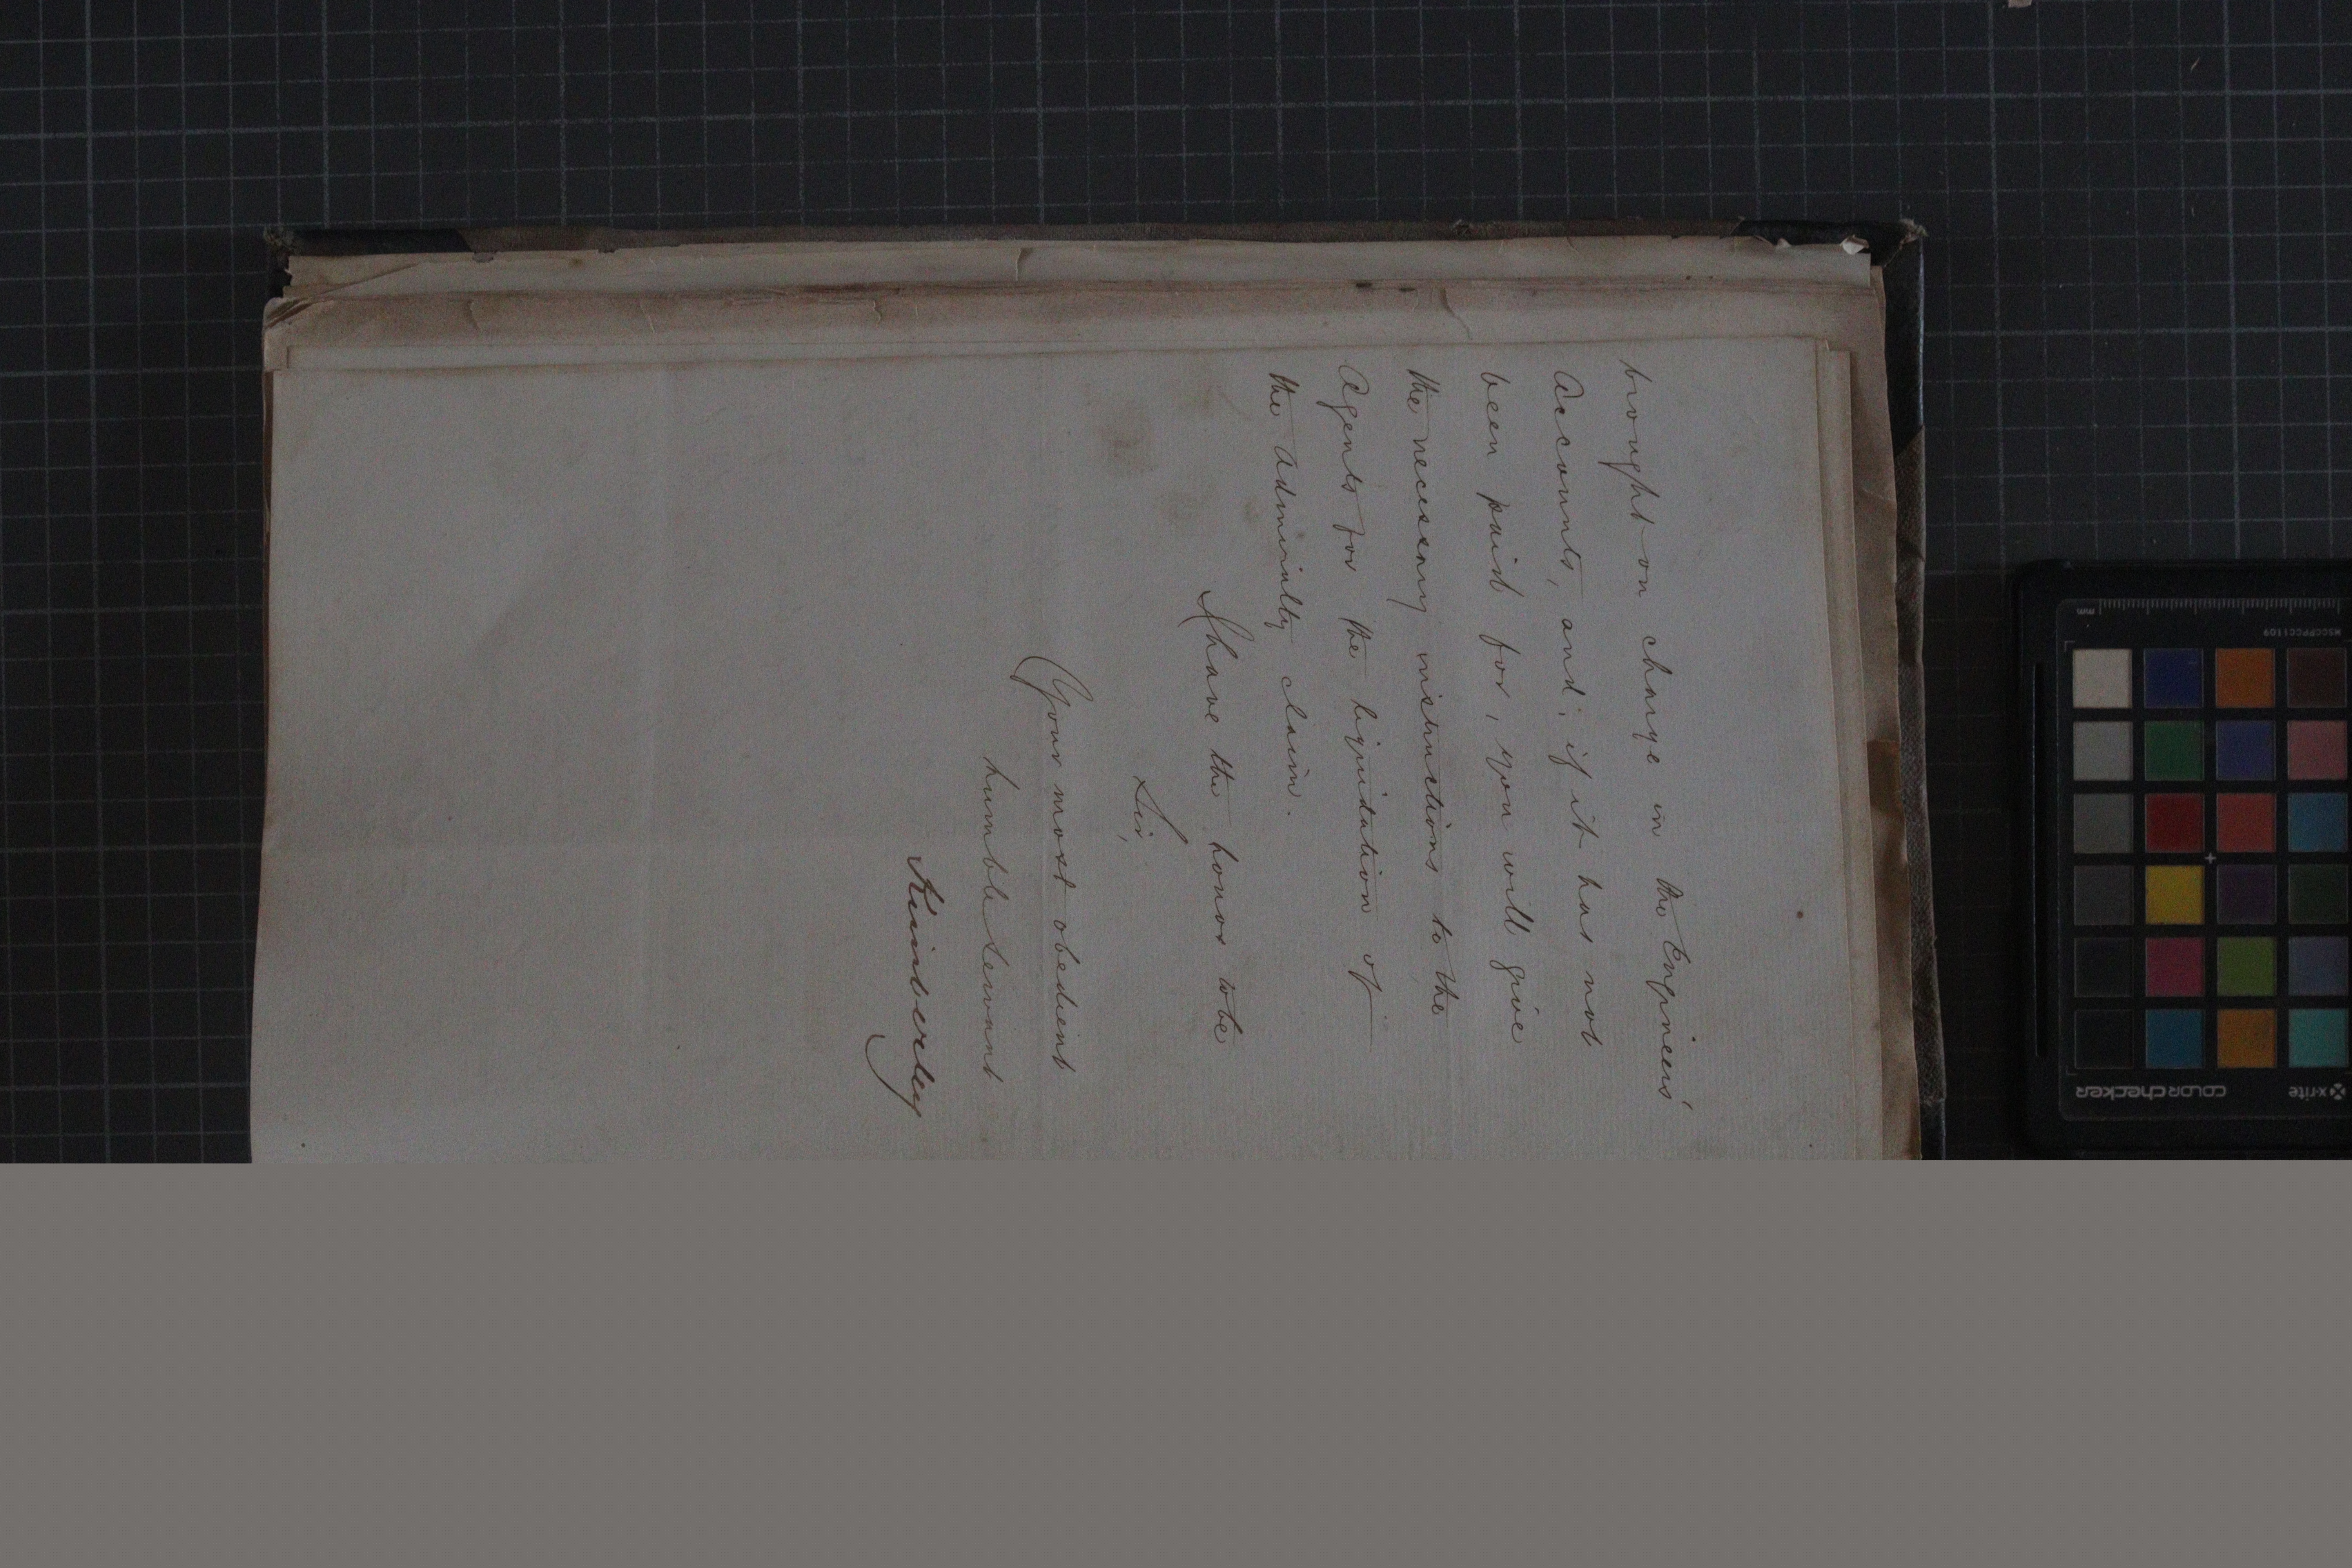 brought on charge in the Engineers'
Accounts, and, if it has not
been paid for, you will give
the necessary instructions to the
Agents for the liquidation of
the Admiralty claim.
I have the honor to be
Sir,
Your most obedient
humble servant
Kimberley
mm
MSCCPPCC1109
x-rite
colorchecker